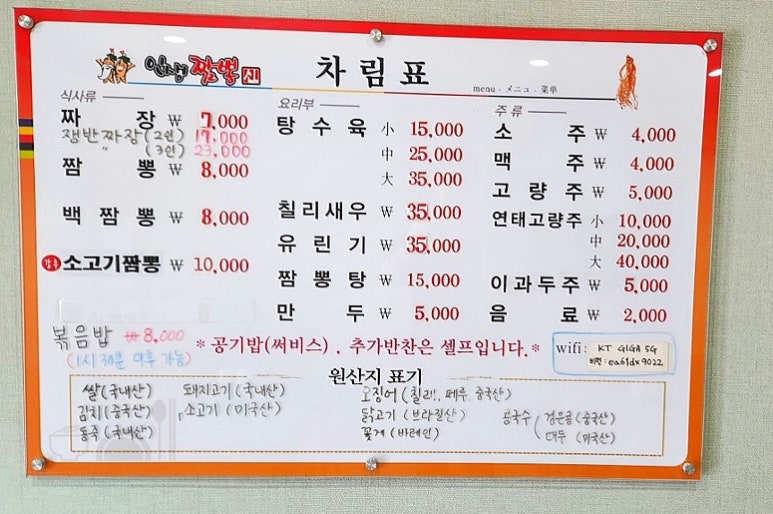 인생짬뽕신
차림표
menu . メニュー . 菜单
식사류
짜장 ₩ 7,000
쟁반짜장 (2인) 17,000
〃 (3인) 23,000
짬뽕 ₩ 8,000
백짬뽕 ₩ 8,000
소고기짬뽕 ₩ 10,000
볶음밥 ₩ 8,000
(1시 30분 이후 가능)
요리부
탕수육 小 15,000
中 25,000
大 35,000
칠리새우 ₩ 35,000
유린기 ₩ 35,000
짬뽕탕 ₩ 15,000
만두 ₩ 5,000
주류
소주 ₩ 4,000
맥주 ₩ 4,000
고량주 ₩ 5,000
연태고량주 小 10,000
中 20,000
大 40,000
이과두주 ₩ 5,000
음료 ₩ 2,000
* 공기밥(써비스) , 추가반찬은 셀프입니다. *
wifi: KT GIGA 5G
비번: ea61dx9022
원산지 표기
쌀(국내산) 돼지고기(국내산) 오징어(칠레, 페루, 중국산)
김치(중국산) 소고기(미국산) 닭고기(브라질산) 콩국수 검은콩(중국산)
동죽(국내산) 꽃게(바레인) 대두(미국산)